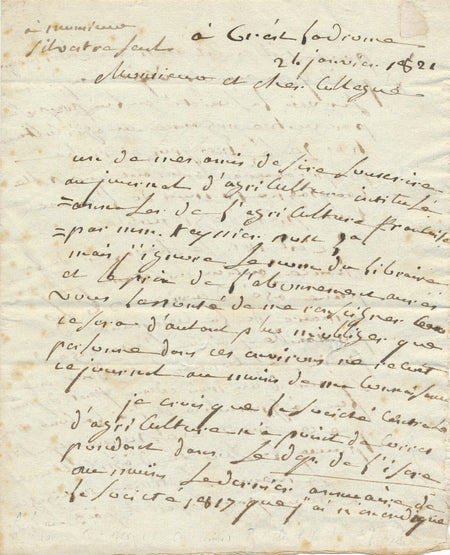 à monsieur
silvestre
à Crest la drome
26 janvier 1821
Monsieur et cher collegue
un de mes amis desire souscrire
au journal d'agriculture intitulé
=annales de l'agriculture francaise
=par mm.
mais j'ignore le nom du libraire
et le prix de l'abonnement
vous la bonté de me
ce sera d'autant plus que
personne dans ces environs ne recoit
ce journal au moins de ma
je crois que la société centrale
d'agriculture n'a point de corres
pondant dans le dpt de l'isere
au moins le dernier annuaire de
la societé 1817 que j'ai n'en indique